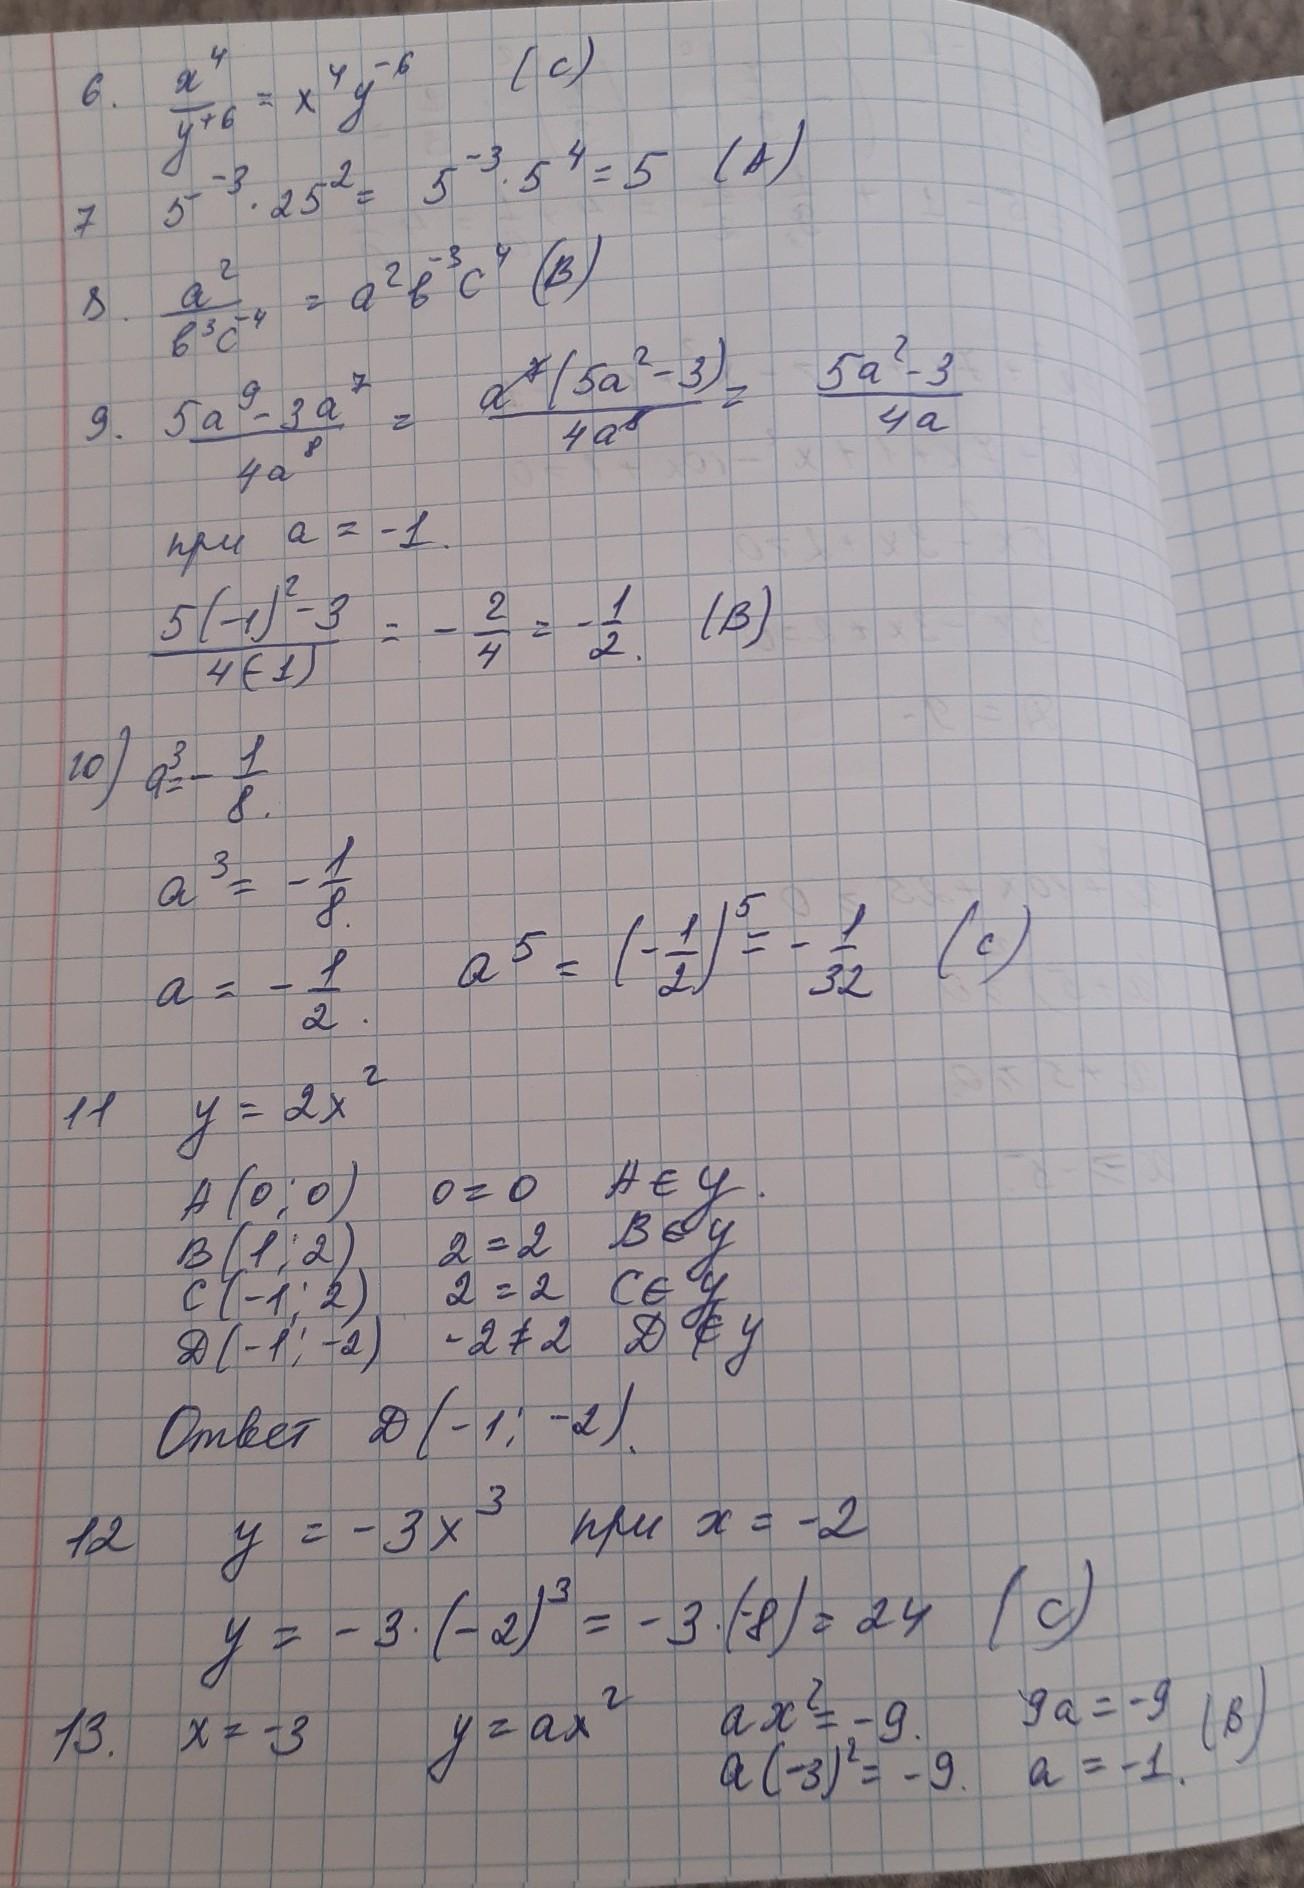 6. x⁴/y⁺⁶ = x⁴y⁻⁶ (C)
7 5⁻³·25² = 5⁻³·5⁴ = 5 (A)
8. a²/в³c⁻⁴ = a²в⁻³c⁴ (B)
9. (5a⁹-3a⁷)/4a⁸ = a⁷(5a²-3)/4a⁸ = (5a²-3)/4a
при a = -1.
(5(-1)²-3)/4(-1) = -2/4 = -1/2. (B)
10) a³=-1/8.
a³ = -1/8.
a = -1/2. a⁵ = (-1/2)⁵ = -1/32 (C)
11 y = 2x²
A(0;0) 0=0 A∈y.
B(1;2) 2=2 B∈y
C(-1;2) 2=2 C∈y
D(-1;-2) -2≠2 D∉y
Ответ D(-1;-2).
12 y = -3x³ при x = -2
y = -3·(-2)³ = -3·(-8) = 24 (C)
13. x = -3 y = ax² ax² = -9. 9a = -9 (B)
a(-3)² = -9. a = -1.